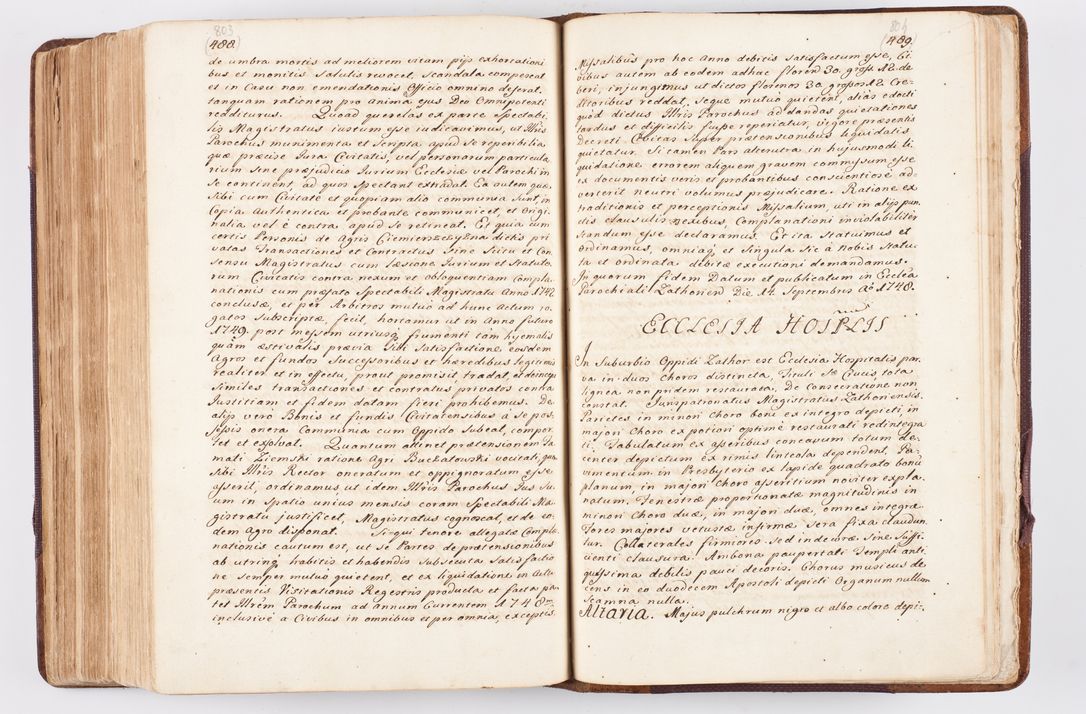 803
488.
de umbra mortis ad meliorem vitam pijs exhortationi
bus et monitis salutis revocet, scandala compescat
et in Casu non emendationis Officio omnino deferat.
tanquam rationem pro anima ejus Deo Omnipotenti
redditurus. Quoad querelas ex parte Spectabi
lis Magistratus iustum esse iudicavimus, ut Illris
Parochus munimenta et Scripta apud se repenbilia
quæ præcise Jura Civitatis, vel personarum particula
rium sine præjudicio Jurium Ecclesiæ vel Parochi in
se continent, ad quos spectant extradat. Ea autem quæ
sibi cum Civitate et quopiam alio communia sunt, in
Copia Authentica et probante communicet, et Origi
nalia vel è contra apud se retineat. Et quia cum
certis Personis de Agris dictis pri
vatas Transactiones et Contractus sine Scitu et Con
sensu Magistratus cum læsione Jurium et Statuto
rum Civitatis contra nexum et obloquentiam Compla
nationis cum præfato Spectabili Magistratu Anno 1742
conclusæ, et per Arbitros mutuo ad hunc actum ro
gatos subscriptæ, fecit, hortamur ut in Anno futuro
1749. post messem utriusq frumenti tam hyemalis
quàm æstivalis prævia sibi satisfactione eosdem
Agros et fundos Successoribus et hæredibus legitimis
realiter et in effectu, prout promisit, tradat, et deinceps
similes transactiones et contratus privatos contra
Justitiam et fidem datam fieri prohibemus. De
alijs verò Bonis et fundis Civitatensibus à se pos
sessis onera Communia cum Oppido subeat, compor
tet et exolvat. Quantum attinet prætensionem Fa
mati Ziemski ratione Agri Buckatowski vocitati, quæ
sibi Illris Rector oneratum et oppignoratum esse
asserit, ordinamus ut idem Illris Parochus Jus su
um in spatio unius mensis coram Spectabili Ma
gistratu justificet, Magistratus cognoscat, et de eo
dem Agro disponat. Sinqui tenore allegatæ Compla
nationis cautum est, ut se Partes de prætensionibus
ab utrinq habitis et habendis subsecuta satisfactio
ne semper mutuo quietent, et ex liquidatione in Actu
præsentis Visitationis Regestris producta et facta pa
tet Illrem Parochum ad annum Currentem 1748um
inclusivè a Civibus in omnibus et per omnia, exceptis
804
489.
Missalibus pro hoc Anno debitis satisfactum esse, Ci
vibus autem ab eodem adhuc floren 30. gross 12. de
beri, injungimus ut dictos florenos 30. grossos 12. Cre
ditoribus reddat, seque mutuo quietent, alias edocti
quod dictus Illris Parochus ad dandas quietationes
tardus et difficilis sæpe reperiatur, vigore præsentis
Decreti Civitas super prætensionibus liquidatis
quietatur. Si tamen Pars alterutra in hujusmodi li
quidatione errorem aliquem gravem commissum esse
ex documentis veris et probantibus conscientiose ad
verterit neutri volumus præjudicare. Ratione ex
traditionis et perceptionis Missalium, uti in alijs pun
ctis clausulis nexibus, Complanationi inviolabiliter
standum esse declaramus. Et ita statuimus et
ordinamus, omniaq et singula sic à Nobis statu
ta et ordinata debitæ executioni demandamus.
In quorum fidem Datum et publicatum in Ecclea
Parochiali Zathonen Die 14. Septembris Ao 1748.
ECCLESIA HOSPLIS
In Suburbio Oppidi Zathor est Ecclesia Hospitalis par
va in duos Choros distincta, Tituli Stæ Crucis, tota
lignea non pridem restaurata. De Consecratione non
constat. Jurispatronatus Magistratus Zathoriensis.
Parietes in minori Choro boni ex integro depicti, in
majori Choro ex potiori optimè restaurati redintegra
ti. Tabulatum ex asseribus concavum totum de
center depictum ex rimis linteola dependent. Pa
vimentum in Presbyterio ex lapide quadrato bonu
planum, in majori Choro asseritium noviter expla
natum. Fenestræ proportionatæ magnitudinis in
minori Choro duæ, in majori duæ, omnes integræ.
Fores majores vetustæ infirmæ sera fixa claudun
tur. Collaterales firmiores sed indecoræ sine suffi
cienti clausura. Ambona paupertati Templi anti
quissima debilis pauci decoris. Chorus musicus de
cens in eo duodecem Apostoli depicti Organum nullum
scamna nulla.
Altaria. Majus pulchrum nigro et albo colore depi: